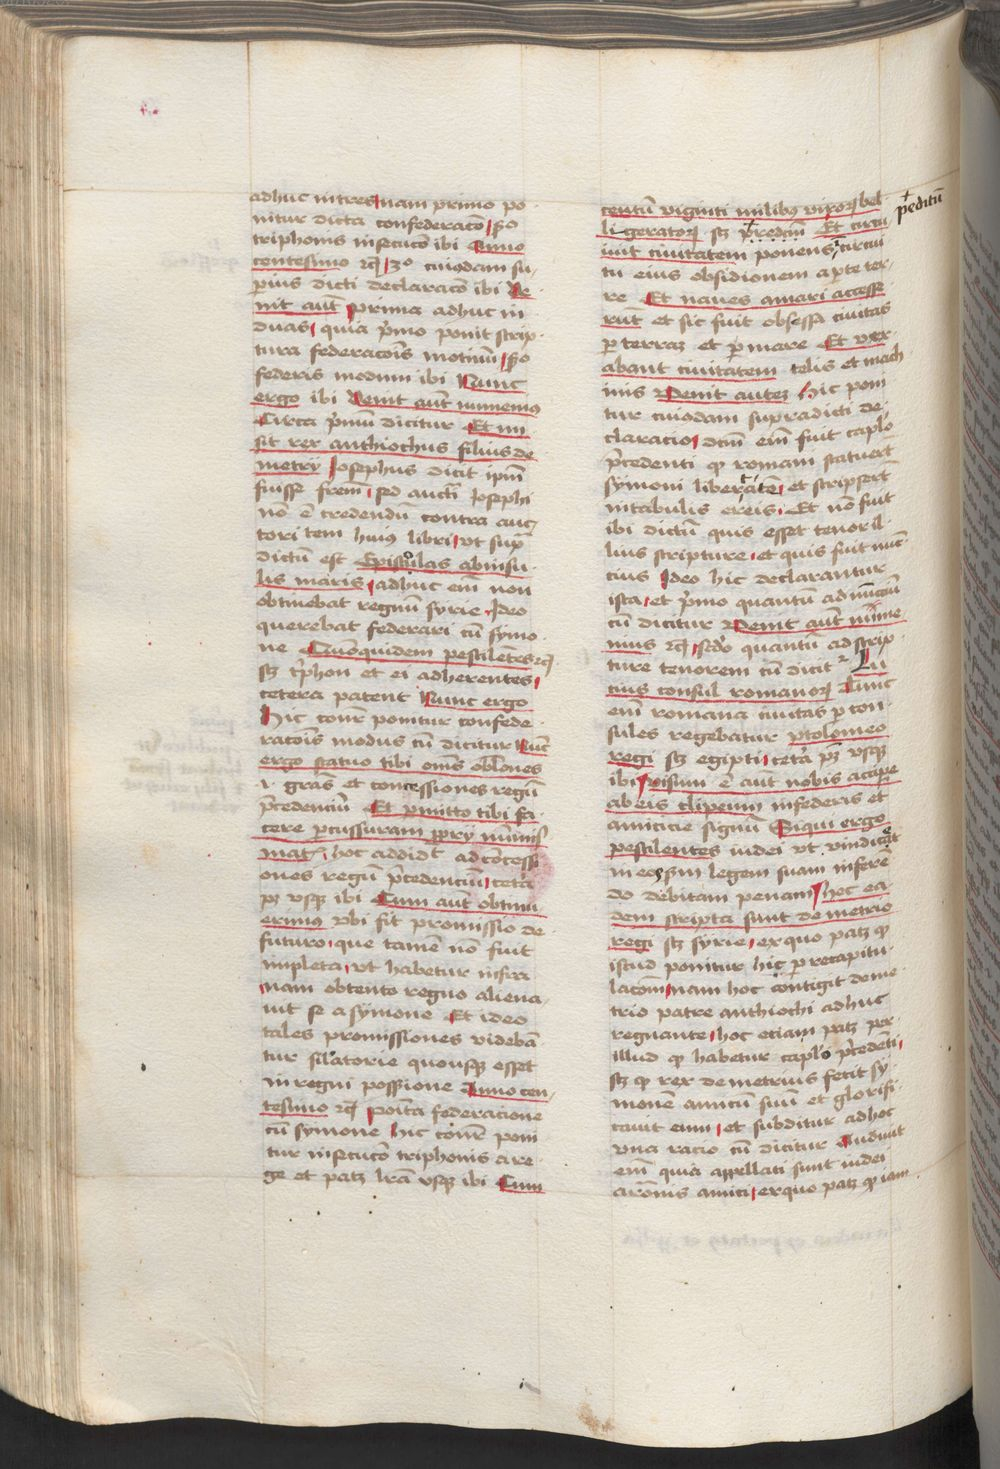 adhuc in tres nam primo po
nitur dicta confederacō sc̄do
triphonis insecucō ibi Anno
centesimo rc̄ 3º cuiusdam su
pius dicti declaracō ibi Ve
nit aut̄ prima adhuc in
duas quia p̄mo ponit scrip
tura federacōis motiuū sc̄do
federis modum ibi Nunc
ergo ibi Venit aut̄ numenius
Circa p̄mū dicitur Et mi
sit rex anthiochus filius de
metry Josephus dicit ip̄m
fuisse frem̄ sed auctī Josephi
nō ē credendū contra auc
toritatem huius libri vt sup̄
dictū est Epistolas ab insu
lis maris adhuc em̄ non
obtinebat regnū syrie Ideo
querebat federari cū symo
ne Quōquidem pestilentes rc̄
sꝫ t'phon et ei adherentes
cetera patent Nunc ergo
Hic cōnr ponitur confede
racōis modus cū dicitur Nūc
ergo statuo tibi om̄s oblōnes
.i. grās et concessiones regū
p̄cedenciū Et p̄mitto tibi fa
cere pcussuram ppry numis
mat̄ hoc addidt ad cōcessi
ones regū p̄cedenciū cetera
pꝫ vsqꝫ ibi Cum aut̄ obtinu
erimus vbi fit promissio de
futuro que tamē nō fuit
impleta vt habetur infra
nam obtento regno aliena
uit se a symone Et ideo
tales promissiones videbā
tur filatorie quousqꝫ esset
in regni possessione Anno cen
tesimo rc̄ posita federacione
cū symone hic cōnr poni
tur insecucō triphonis a re
ge et patꝫ lr̄a vsqꝫ ibi Cum
centū viginti milibus virorꝫ bel
li geratorꝫ sꝫ p̄redcm̄ Et circu
p̄editū
iuit ciuitatem ponens circui
tu eius obsidionem a pte ter
re Et naues a mari accesse
rūt et sic fuit obsessa ciuitas
p terraꝫ et p mare Et vex
abant ciuitatem telis et mach
inis Venit auteꝫ hic poni
tur cuiusdam supradicti de
claracio dcm̄ em̄ fuit caplo
p̄cedenti qꝫ romani statuert
symoni libertatē et scripsert
in tabulis ereis Et nō fuit
ibi dictū quis esset tenor il
lius scripture et quis fuit nūc
cius Ideo hic declarantur
ista et p̄mo quantū ad nūcciū
cū dicitur Venit aut̄ nūme
nius rc̄ sc̄do quantū ad scrip
ture tenorem cū dicit Lu
cius consul romanorꝫ Tunc
em̄ romana ciuitas p con
sules regebatur ptolomeo
regi sꝫ egipti cetā pꝫ vsqꝫ
ibi visum ē aut̄ nobis accipe
ab eis clipeum in federis et
amicicie signū Siqui ergo
pestilentes iudei vt vindicet
in eos sm̄ legem suam inferē
do debitam penam hec ea
dem scripta sunt demetrio
regi sꝫ syrie ex quo patꝫ qꝫ
istud ponitur hic p recapitu
lacōm nam hoc contigit deme
trio patre anthiochi adhuc
regnante hoc eciam patꝫ per
illud qꝫ habetur caplo p̄cedēti
sꝫ qꝫ rex demetrius fecit sy
monē amicū suū et glorifi
cauit eum et subditur ad hoc
vna racio cū dicitur Audiuit
em̄ quia appellati sunt iudei
a romis amici ex quo patꝫ qꝫ iam